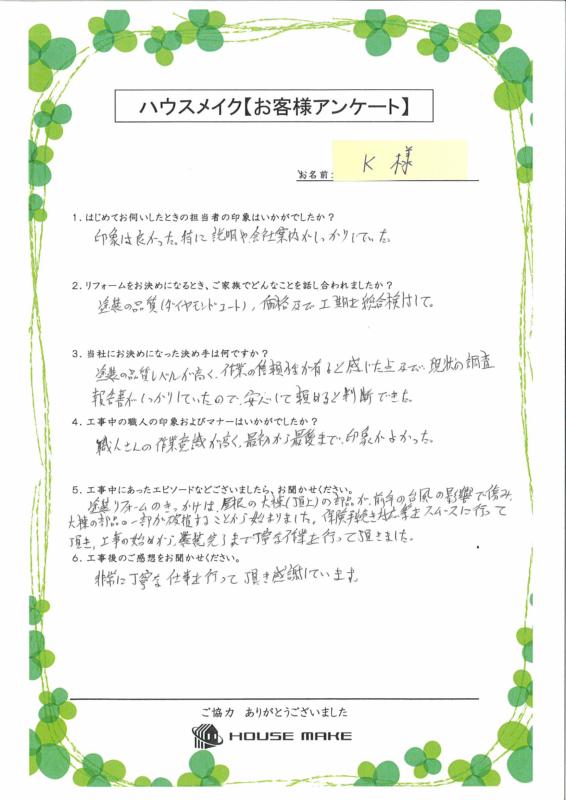 ハウスメイク【お客様アンケート】
お名前: K 様
1.はじめてお伺いしたときの担当者の印象はいかがでしたか?
印象は良かった。特に説明や会社案内がしっかりしていた。
2.リフォームをお決めになるとき、ご家族でどんなことを話し合われましたか?
塗装の品質(ダイヤモンドコート)、価格及び工期を総合検討して。
3.当社にお決めになった決め手は何ですか?
塗装の品質レベルが高く、作業の信頼性が有ると感じた上で、現状の調査
報告書がしっかりしていたので、安心して頼めると判断できた。
4.工事中の職人の印象およびマナーはいかがでしたか?
職人さんの作業意識が高く、最初から最後まで、印象がよかった。
5.工事中にあったエピソードなどございましたら、お聞かせください。
塗装リフォームのきっかけは、屋根の大棟(頂上)の部品が、前年の台風の影響で傷み、
大棟の部品の一部が破損することから始まりました。保険手続き スムースに行って
頂き、工事の始めから、完了まで丁寧な作業を行って頂きました。
6.工事後のご感想をお聞かせください。
非常に丁寧な仕事を行って頂き感謝しています。
ご協力 ありがとうございました
HOUSE MAKE